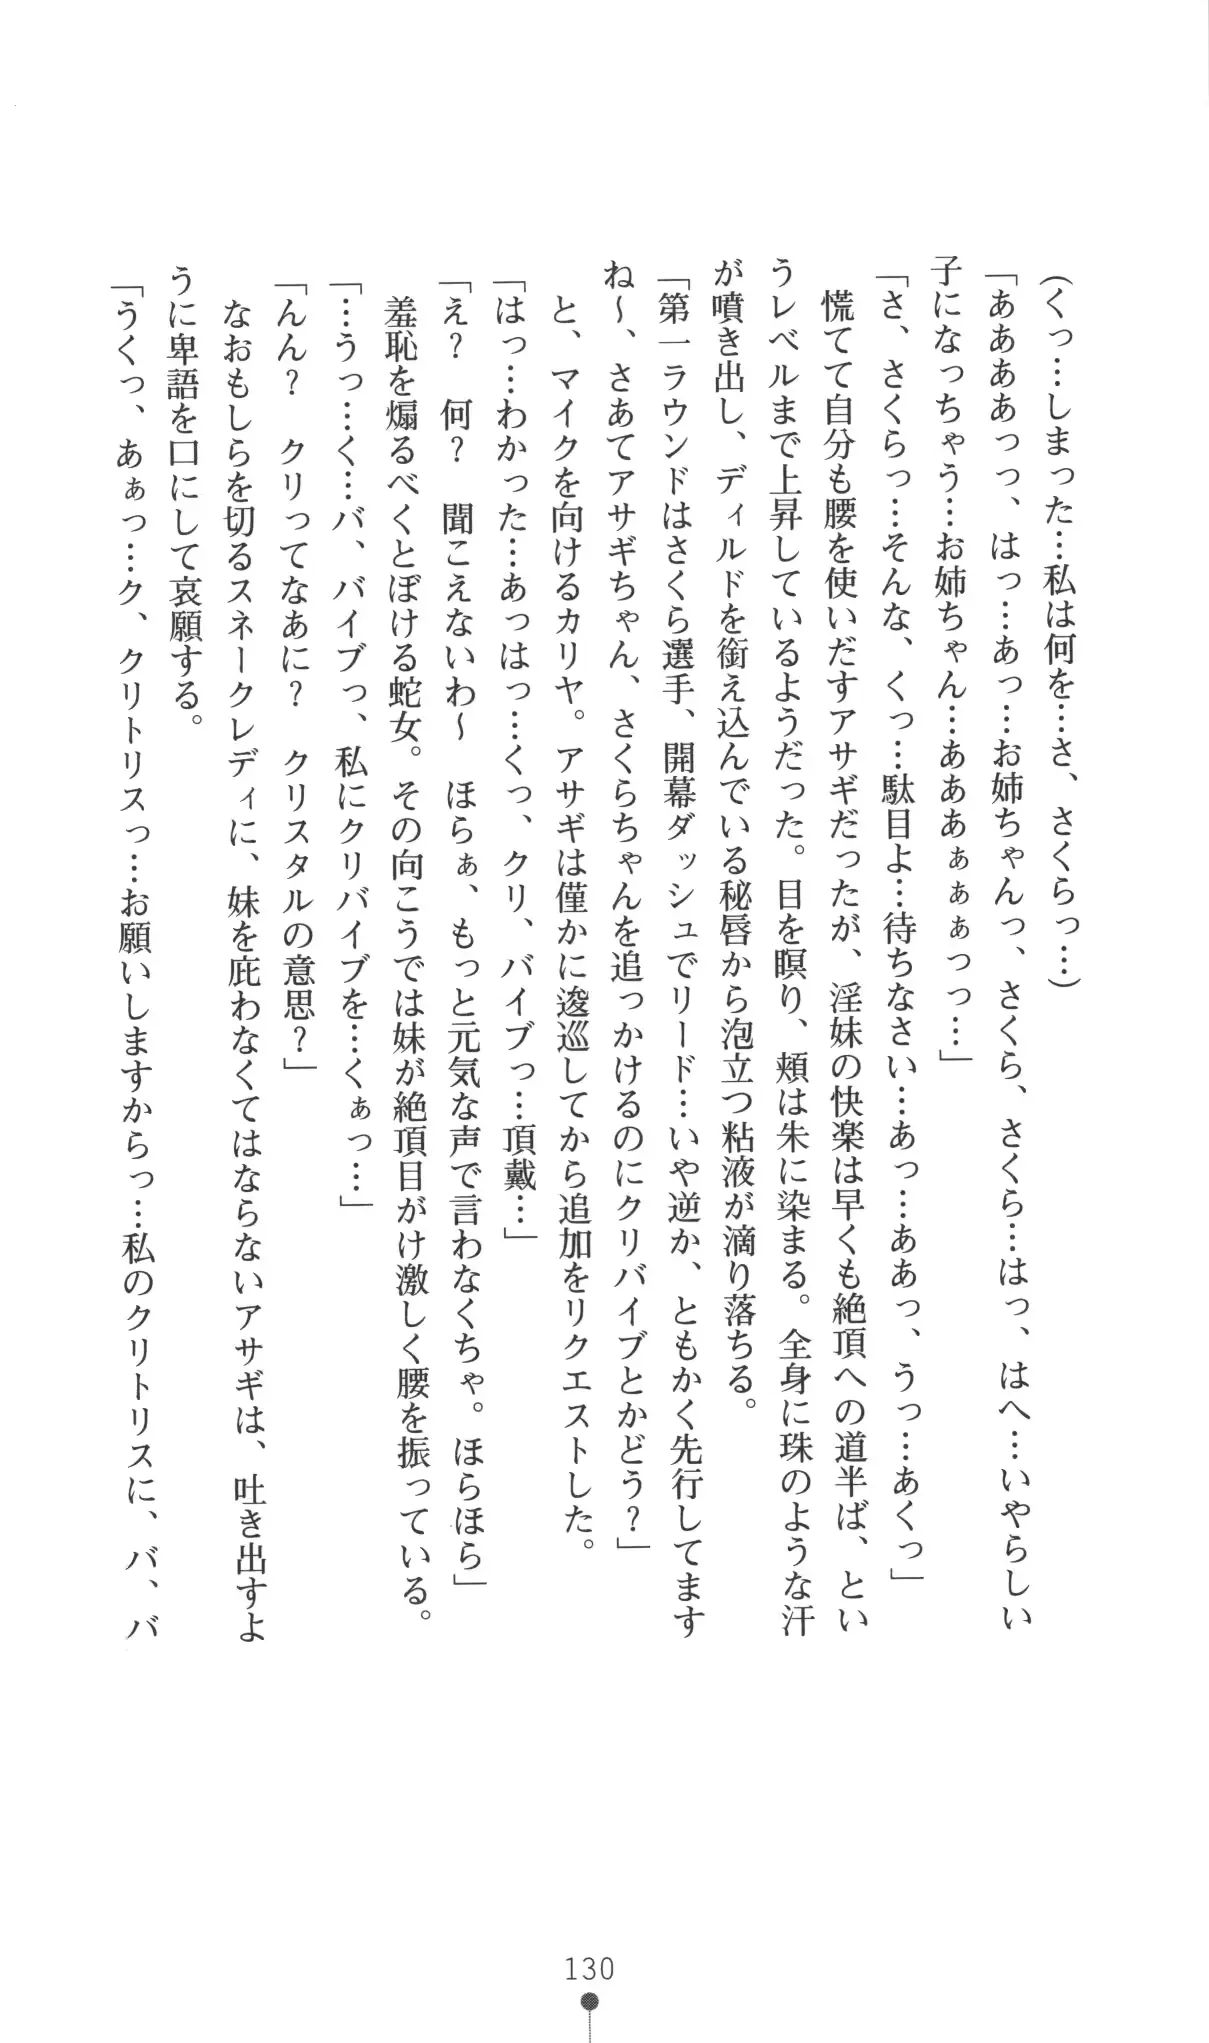 (くっ…しまった…私は何を…さ、さくらっ…)
「ああああっっ、はっ…あっ…お姉ちゃんっ、さくら、さくら…はっ、はへ…いやらしい
子になっちゃう…お姉ちゃん…あああぁぁぁっっ…」
「さ、さくらっ…そんな、くっ…駄目よ…待ちなさい…あっ…ああっ、うっ…あくっ」
　慌てて自分も腰を使いだすアサギだったが、淫妹の快楽は早くも絶頂への道半ば、とい
うレベルまで上昇しているようだった。目を瞑り、頬は朱に染まる。全身に珠のような汗
が噴き出し、ディルドを銜え込んでいる秘唇から泡立つ粘液が滴り落ちる。
「第一ラウンドはさくら選手、開幕ダッシュでリード…いや逆か、ともかく先行してます
ね～、さあてアサギちゃん、さくらちゃんを追っかけるのにクリバイブとかどう？」
　と、マイクを向けるカリヤ。アサギは僅かに逡巡してから追加をリクエストした。
「はっ…わかった…あっはっ…くっ、クリ、バイブっ…頂戴…」
「え？　何？　聞こえないわ～　ほらぁ、もっと元気な声で言わなくちゃ。ほらほら」
　羞恥を煽るべくとぼける蛇女。その向こうでは妹が絶頂目がけ激しく腰を振っている。
「…うっ…く…バ、バイブっ、私にクリバイブを…くぁっ…」
「んん？　クリってなあに？　クリスタルの意思？」
　なおもしらを切るスネークレディに、妹を庇わなくてはならないアサギは、吐き出すよ
うに卑語を口にして哀願する。
「うくっ、あぁっ…ク、クリトリスっ…お願いしますからっ…私のクリトリスに、バ、バ
130